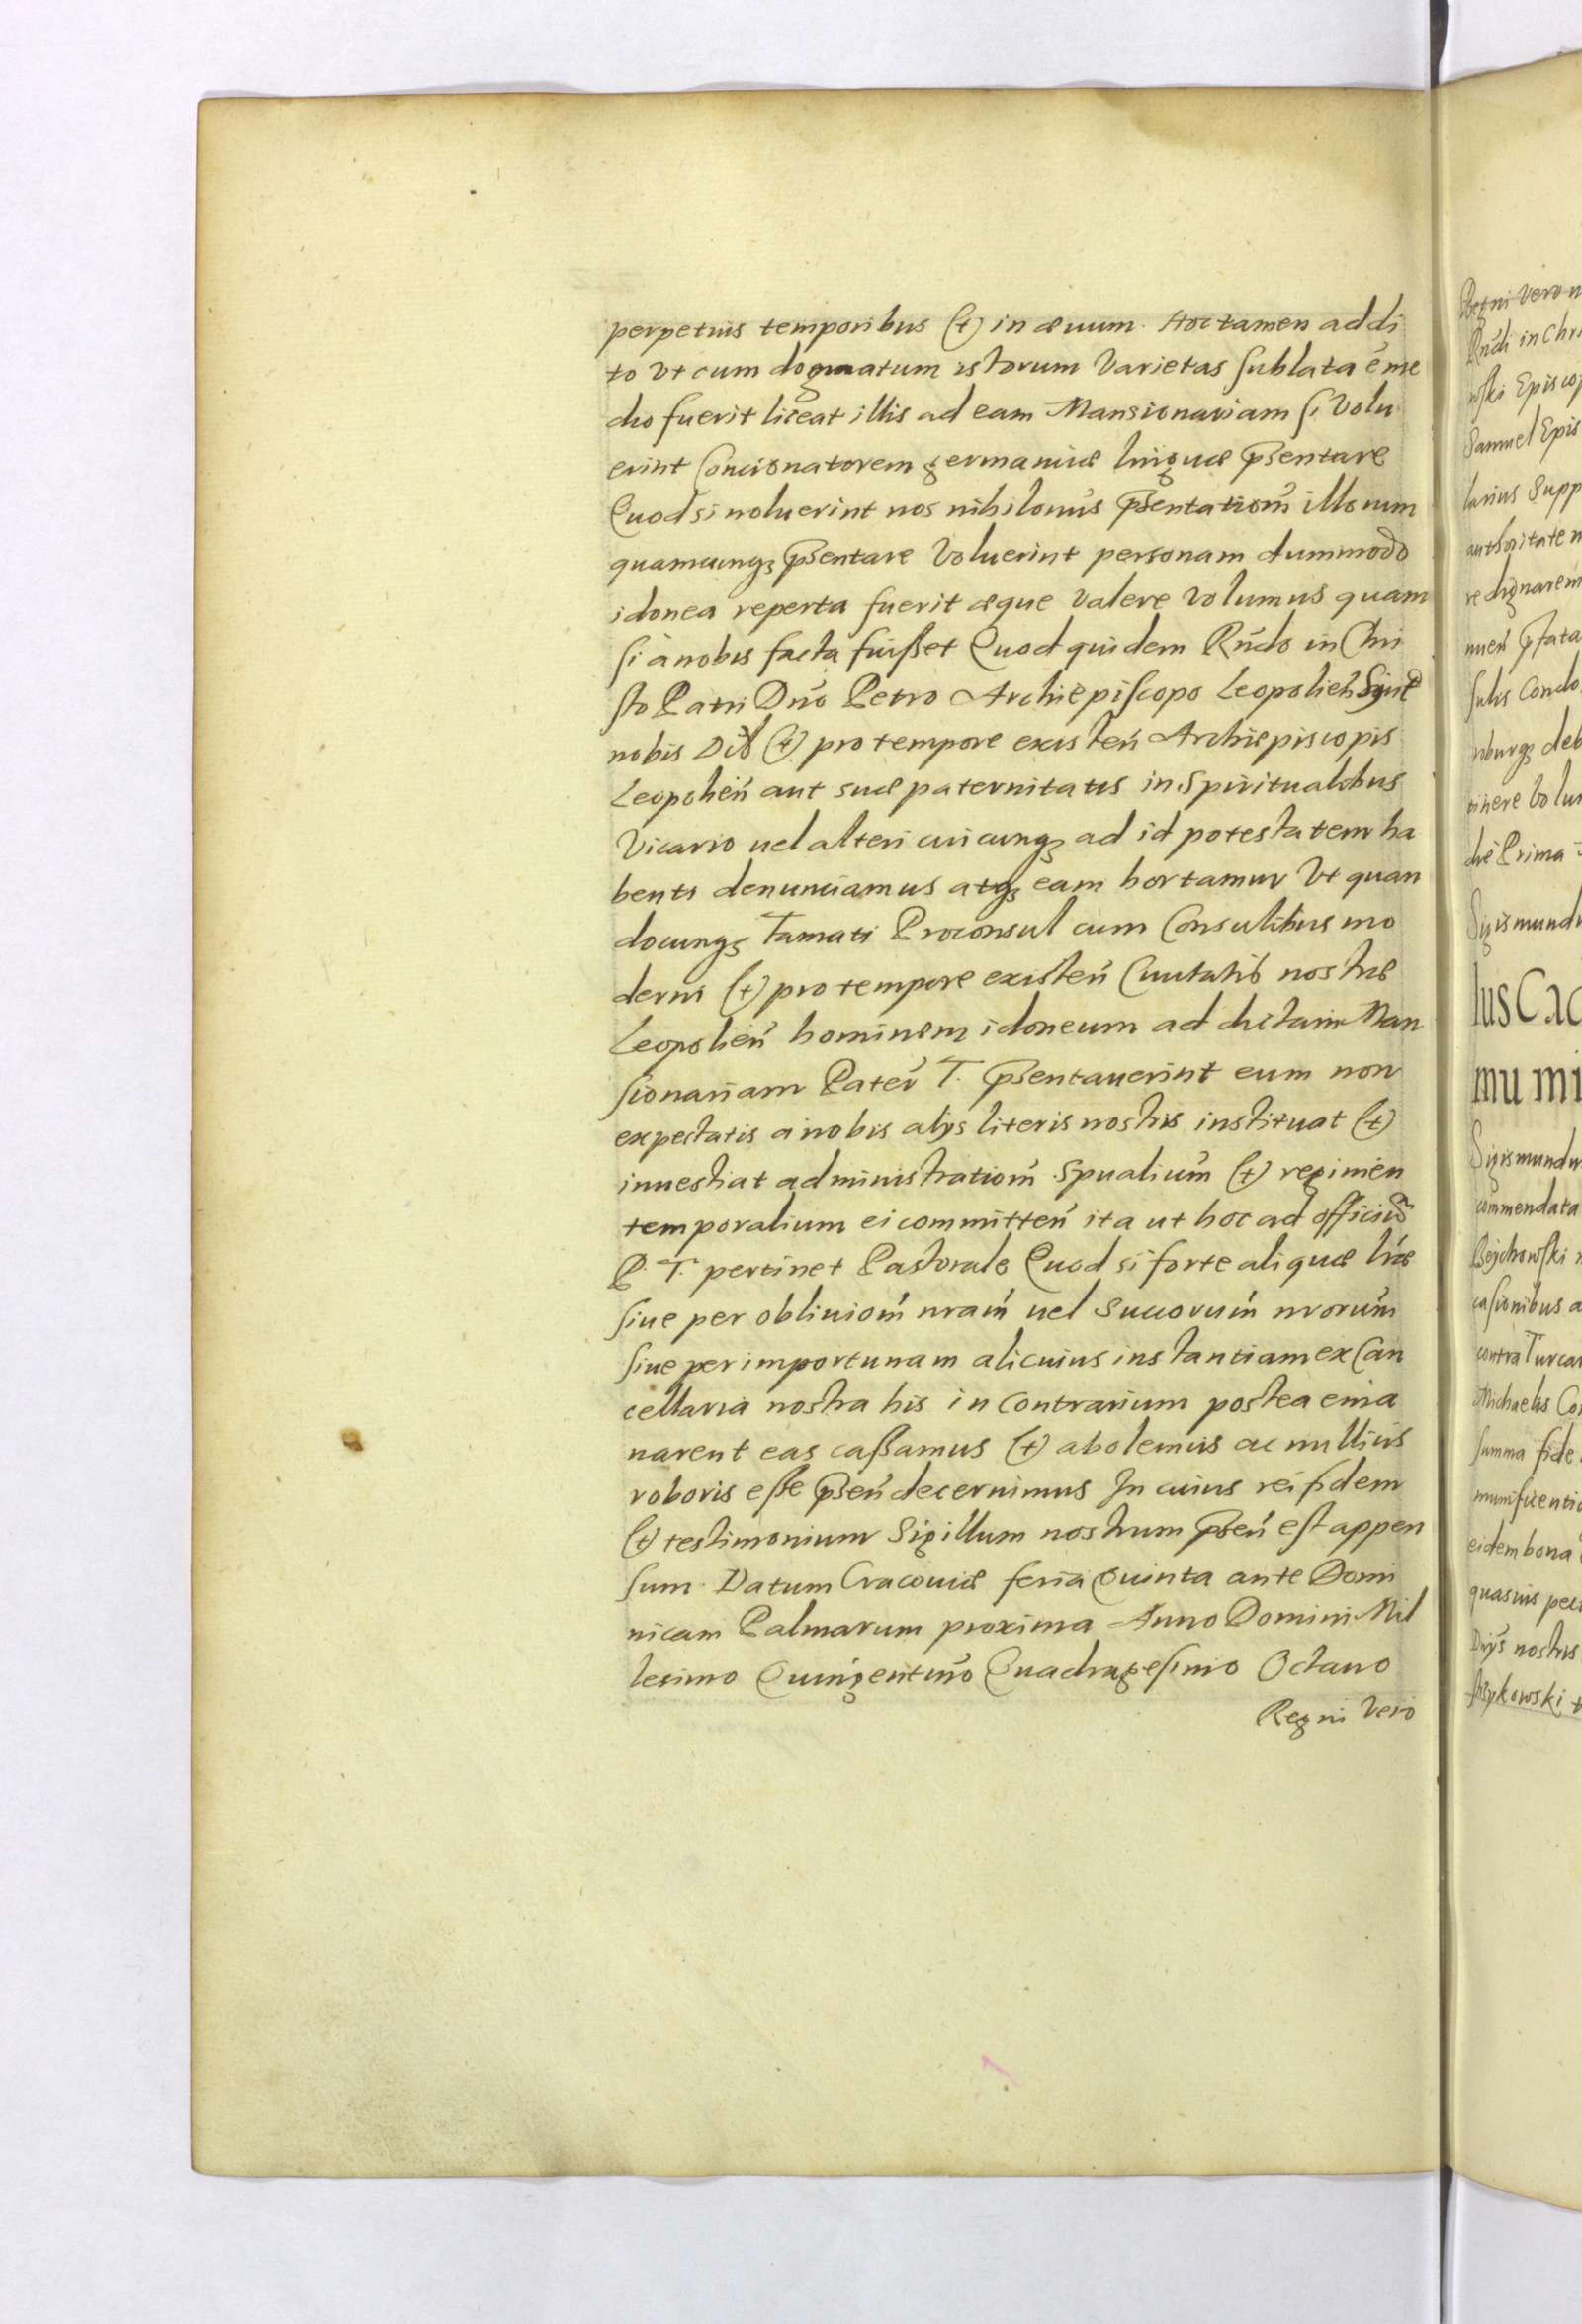 perpetuis temporibus (et) in æuum. Hoc tamen addi
to vt cum dogmatum istorum varietas sublata e me
dio fuerit liceat illis ad eam Mansionariam si volu
erint Concionatorem germanicæ linguæ p̄sentare
Quod si noluerint nos nihilomūs p̄sentatiom̄ illorum
quamcunq₃ p̄sentare voluerint personam dummodo
idonea reperta fuerit æque valere volumus quam
si à nobis facta fuisset Quod quidem Rn̄do in Chri
sto Patri Dn̄o Petro Archiepiscopo Leopolien̄ Syncē
nobis Dil (et) pro tempore existen̄ Archiepiscopis
Leopolien̄ aut suæ paternitatis in Spiritualibus
Vicario uel alteri cuicunq₃ ad id potestatem ha
benti denunciamus atq₃ eam hortamur Vt quan
docunq₃ Famati Proconsul cum Consulibus mo
derni (et) pro tempore existen̄ Ciuitatis nostræ
Leopolien̄ hominem idoneum ad dictam Man
sionariam Pater̄ T. p̄sentauerint eum non
expectatis a nobis alijs literis nostris instituat (et)
inuestiat administratiom̄ Spualium̄ (et) regimen
temporalium ei committen̄ ita ut hoc ad officiū
P. T. pertinet Pastorale Quod si forte aliquæ lr̄æ
siue per obliuiom̄ nram̄ uel Succorum̄ nrorum̄
siue per importunam alicuius instantiam ex Can
cellaria nostra his in Contrarium postea ema
narent eas cassamus (et) abolemus ac nullius
roboris esse p̄sen̄ decernimus In cuius rei fidem
(et) testimonium Sigillum nostrum p̄sen̄ est appen
sum. Datum Cracouiæ feria Quinta ante Domi
nicam Palmarum proxima Anno Domini Mil
lesimo Quingentmō Quadragesimo Octauo
Regni Vero
Regni Vero n
Rn̄di in Chri
Samuel Epis
larius Supp
authoritate n
re dignarem
tinere Volu
Sigismundu
lus Cac
mu mi
Sigismundu
commendata
casionibus a
contra Turcar
Michaelis Co
summa fide
munificentia
eidem bona
quasuis pec